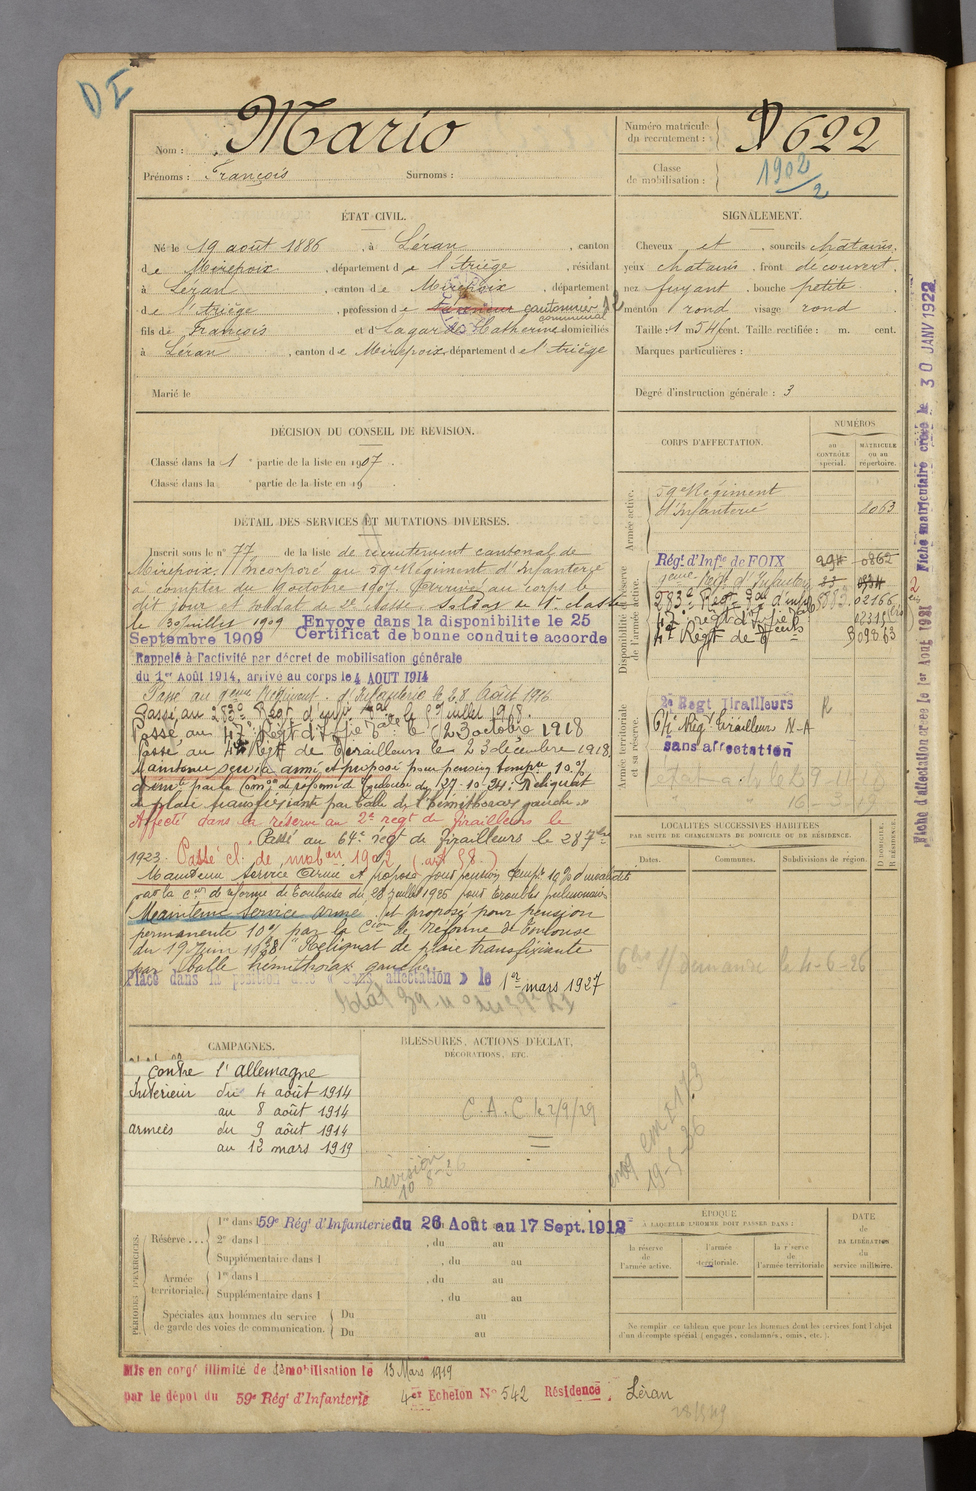 D I
Nom : Mario
Prénoms : François Surnoms :
Numéro matricule du recrutement : 622
Classe de mobilisation : 1902/2
ÉTAT CIVIL.
Né le 19 août 1886, à Léran, canton
de Mirepoix, département de l'Ariège, résidant
à Léran, canton de Mirepoix, département
de l'Ariège, profession de cantonnier communal
fils de François et de Lagarde Catherine domiciliés
à Léran, canton de Mirepoix, département de l'Ariège
Marié le
SIGNALEMENT.
Cheveux et, sourcils châtains.
yeux chatains, front découvert.
nez fuyant, bouche petite.
menton rond visage rond
Taille : 1 m 54 cent. Taille rectifiée : m. cent.
Marques particulières :
Dégré d'instruction générale : 3
DÉCISION DU CONSEIL DE REVISION.
Classé dans la 1e partie de la liste en 1907.
Classé dans la e partie de la liste en 19
DÉTAIL DES SERVICES ET MUTATIONS DIVERSES.
Inscrit sous le n° 77 de la liste de recrutement cantonal de
Mirepoix. Incorporé au 59e Régiment d'Infanterie
à compter du 9 octobre 1907. Arrivé au corps le
dit jour et soldat de 2e classe. Soldat de 1e classe
le 30 juillet 1909 Envoyé dans la disponibilité le 25
Septembre 1909 Certificat de bonne conduite accordé
Rappelé à l'activité par décret de mobilisation générale
du 1er Août 1914, arrivé au corps le 4 AOUT 1914
Passé au 9eme Régiment d'Infanterie le 28 Août 1916
Passé au 283e Régt d'infie le 5 Juillet 1918.
Passé au 42e Régt d'Infie le 23 octobre 1918
Passé au 4e Régt de Tirailleurs le 23 décembre 1918
Maintenu service armé et proposé pour pension tempre 10 %
par la Comon de réforme de Toulouse du 27-10-24: Reliquat
de plaie transfixiante par balle de l'hémithorax gauche
Affecté dans la réserve au 2e regt de Tirailleurs le
Passé au 64e regt de Tirailleurs le 28
1923. Passé cl. de mobon 1902 (art 58.)
Maintenu Service Armé et proposé pour pension tempre 10 % d'invalidité
par la con de réforme de Toulouse du 28 juillet 1925 pour troubles pulmonaires
Maintenu Service armé et proposé pour pension
permanente 10 % par la Cion de Réforme de Toulouse
du 19 Juin 1928 "Reliquat de plaie transfixiante
par balle hémithorax gauche
Placé dans la position dite « sans affectation » le 1er mars 1927
CORPS D'AFFECTATION.
NUMÉROS
au CONTRÔLE spécial.
MATRICULE ou au répertoire.
Armée active.
59e Régiment d'Infanterie 8063
Disponibilité et réserve de l'armée active.
Régt d'Infie de FOIX 0862
9eme Regt d'Infanterie
283e Regt d'infie 02166
42e regt d'Infie
4e Régt de
Armée territoriale et sa réserve.
2e Regt Tirailleurs R
64e Régt Tirailleurs N-A
sans affectation
LOCALITÉS SUCCESSIVES HABITÉES
PAR SUITE DE CHANGEMENTS DE DOMICILE OU DE RÉSIDENCE.
Dates. Communes. Subdivisions de région. D DOMICILE. R RÉSIDENCE.
demande le 4-6-26
19-5-26
Fiche d'affectation créée le 1er Août 1921 Fiche matriculaire créée le 30 JANV 1922
CAMPAGNES.
contre l'allemagne
Intérieur du 4 août 1914
au 8 août 1914
armées du 9 août 1914
au 12 mars 1919
BLESSURES, ACTIONS D'ÉCLAT,
DÉCORATIONS, ETC.
C.A.C. le 2/9/29
révision
PÉRIODES D'EXERCICES.
Réserve . . .
1re dans l 59e Régt d'Infanterie du 26 Août au 17 Sept. 1912
2e dans l , du au
Supplémentaire dans l , du au
Armée territoriale.
1re dans l , du au
Supplémentaire dans l , du au
Spéciales aux hommes du service de garde des voies de communication.
Du au
Du au
ÉPOQUE
À LAQUELLE L'HOMME DOIT PASSER DANS :
la réserve de l'armée active.
l'armée territoriale.
la réserve de l'armée territoriale
DATE de LA LIBÉRATION du service militaire.
Ne remplir ce tableau que pour les hommes dont les services font l'objet
d'un décompte spécial (engagés, condamnés, omis, etc.).
Mis en congé illimité de démobilisation le 13 Mars 1919
par le dépôt du 59e Régt d'Infanterie 4er Echelon N° 542 Résidence Léran